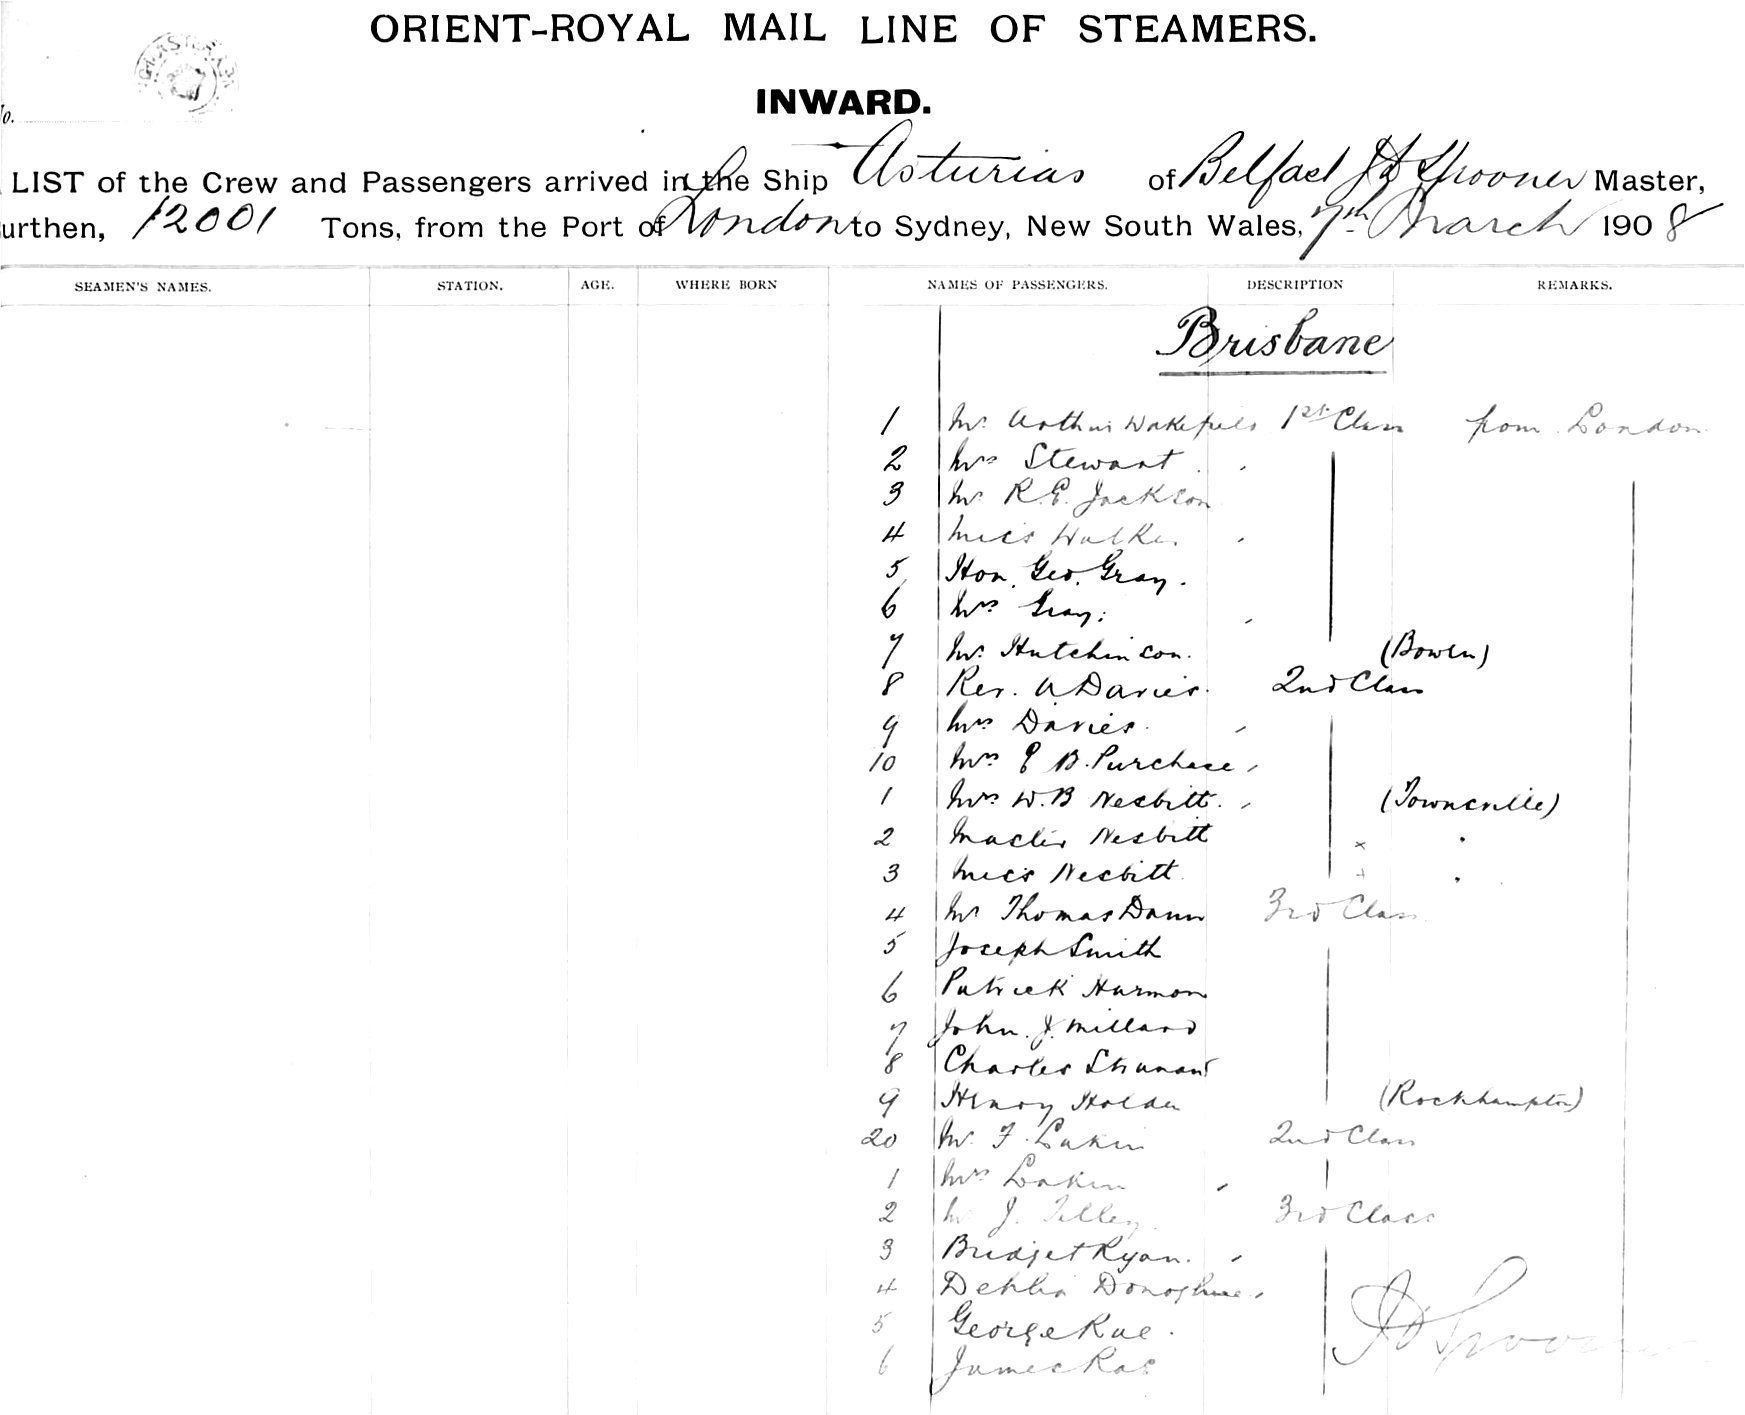 ORIENT-ROYAL MAIL LINE OF STEAMERS.
INWARD.
o.
LIST of the Crew and Passengers arrived in the Ship Asturias of Belfast J D Spooner Master,
urthen, 12001 Tons, from the Port of London to Sydney, New South Wales, 7th March 1908
SEAMEN'S NAMES. STATION. AGE. WHERE BORN NAMES OF PASSENGERS. DESCRIPTION REMARKS.
Brisbane
1 Mr Arthur Wakefield 1st Class from London
2 Mrs Stewart
3 Mr R.E. Jackson
4 Miss Walker
5 Hon. Geo. Gray.
6 Mrs Gray.
7 Mr Hutchinson. (Bowen)
8 Rev. A Davies. 2nd Class
9 Mrs Davies.
10 Mrs E B. Purchase
1 Mrs W.B Nesbitt. (Townsville)
2 Master Nesbitt
3 Miss Nesbitt
4 Mr Thomas Dann 3rd Class
5 Joseph Smith
6 Patrick Harmon
7 John. J. Millard
8 Charles
9 Henry Holden (Rockhampton)
20 Mr F. Lakin 2nd Class
1 Mrs Lakin
2 Mr J. Tilley. 3rd Class
3 Bridget Ryan.
4 Dehlia Donoghue
5 George Rae.
6 James Rae
J D Spooner